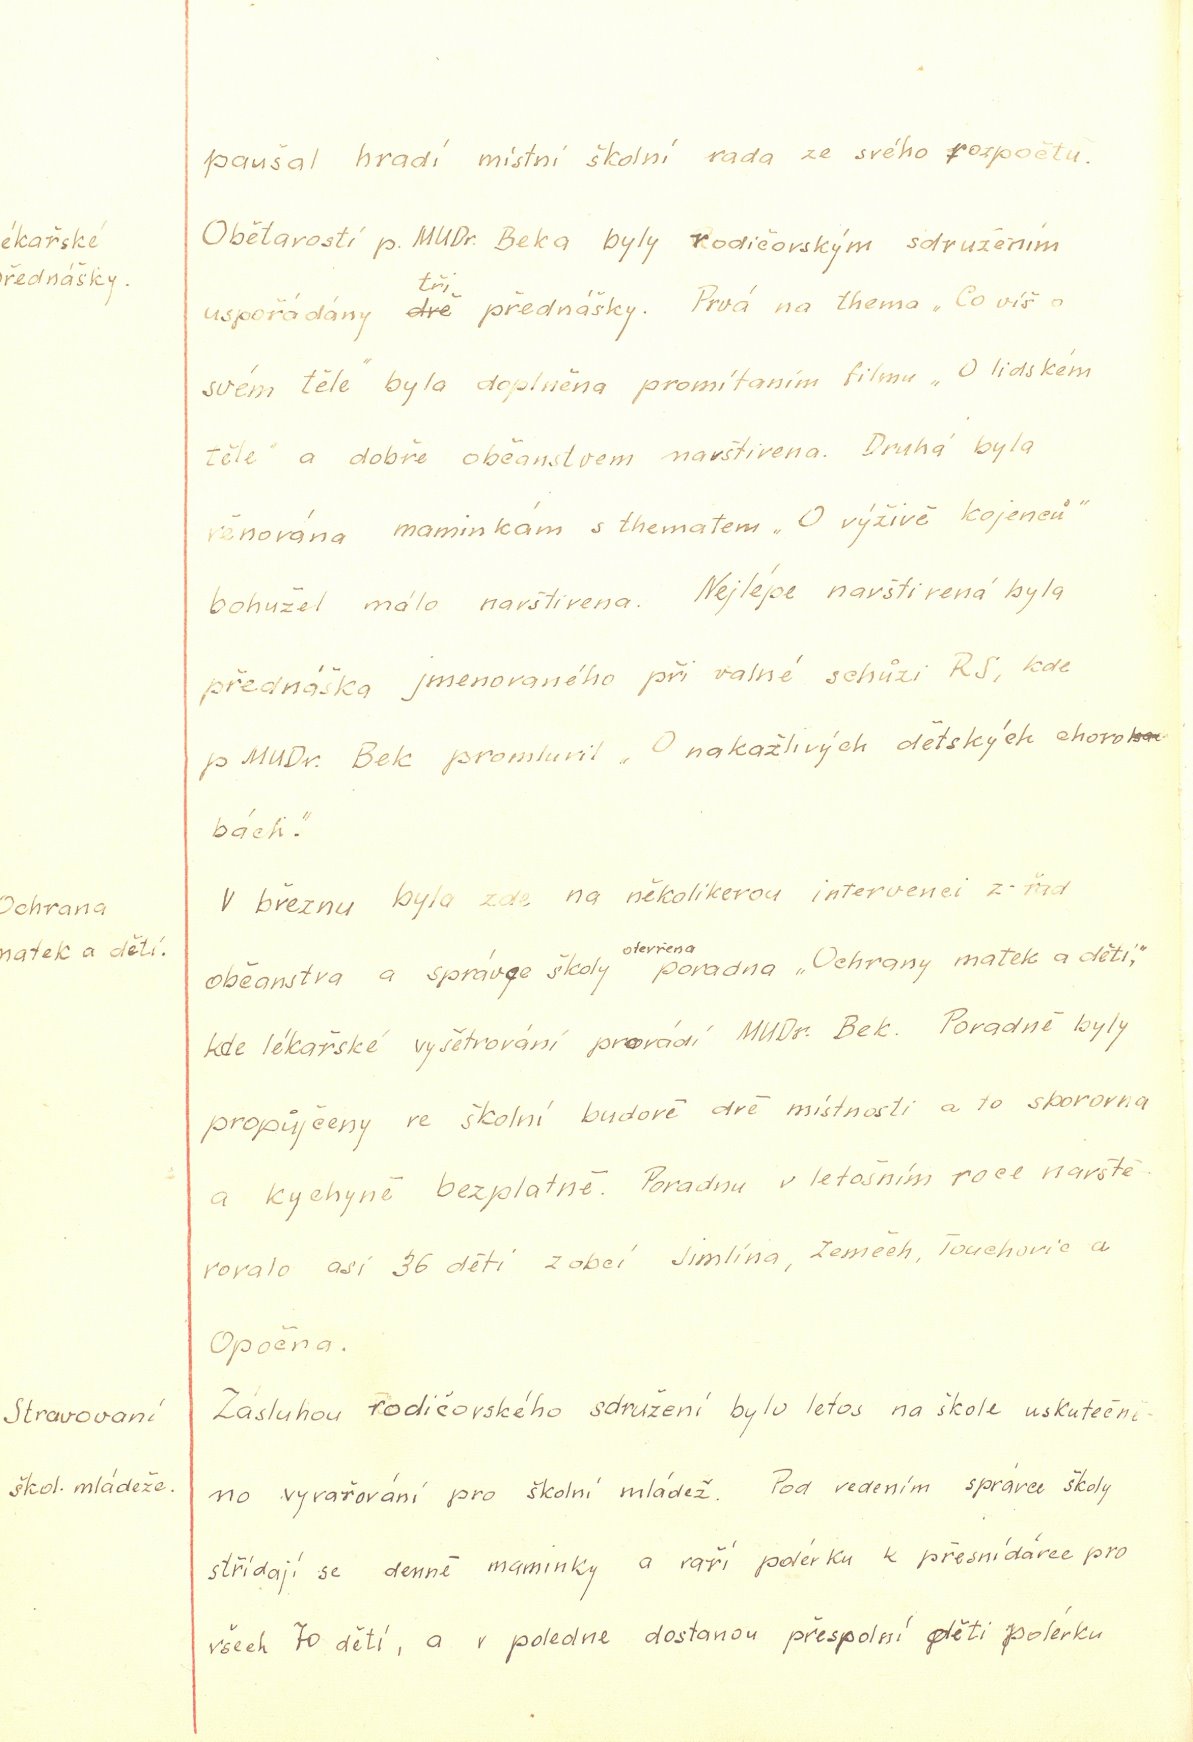 paušal hradí místní školní rada ze svého rozpočtu.
ékařské
přednášky.
Obětavostí p. MUDr. Beka byly rodičovským sdružením
tři
uspořádány dvě přednášky. Prvá na thema „Co víš o
svém těle" byla doplněna promítaním filmu „O lidském
těle" a dobře občanstvem navštívena. Druhá byla
věnována maminkám s thematem „O výživě kojenců"
bohužel málo navštívena. Nejlépe navštívená byla
přednáška jmenovaného při valné schůzi RS, kde
p MUDr. Bek promluvil „O nakažlivých dětských choro
bách."
Ochrana
matek a dětí.
V březnu byla zde na několikerou intervenci z řad
otevřena
občanstva a správce školy poradna „Ochrany matek a dětí,"
kde lékařské vyšetřování provádí MUDr. Bek. Poradně byly
propůjčeny ve školní budově dvě místnosti a to sborovna
a kychyně bezplatně. Poradnu v letošním roce navště-
vovalo asi 36 dětí z obcí Simlína, Zeměch, Touchovic a
Opočna.
Stravovaní
škol. mládeže.
Zásluhou rodičovského sdružení bylo letos na škole uskutečně-
no vyvařování pro školní mládež. Pod vedením správce školy
střídají se denně maminky a vaří polévku k přesnídávce pro
všech 70 dětí, a v poledne dostanou přespolní děti polévku